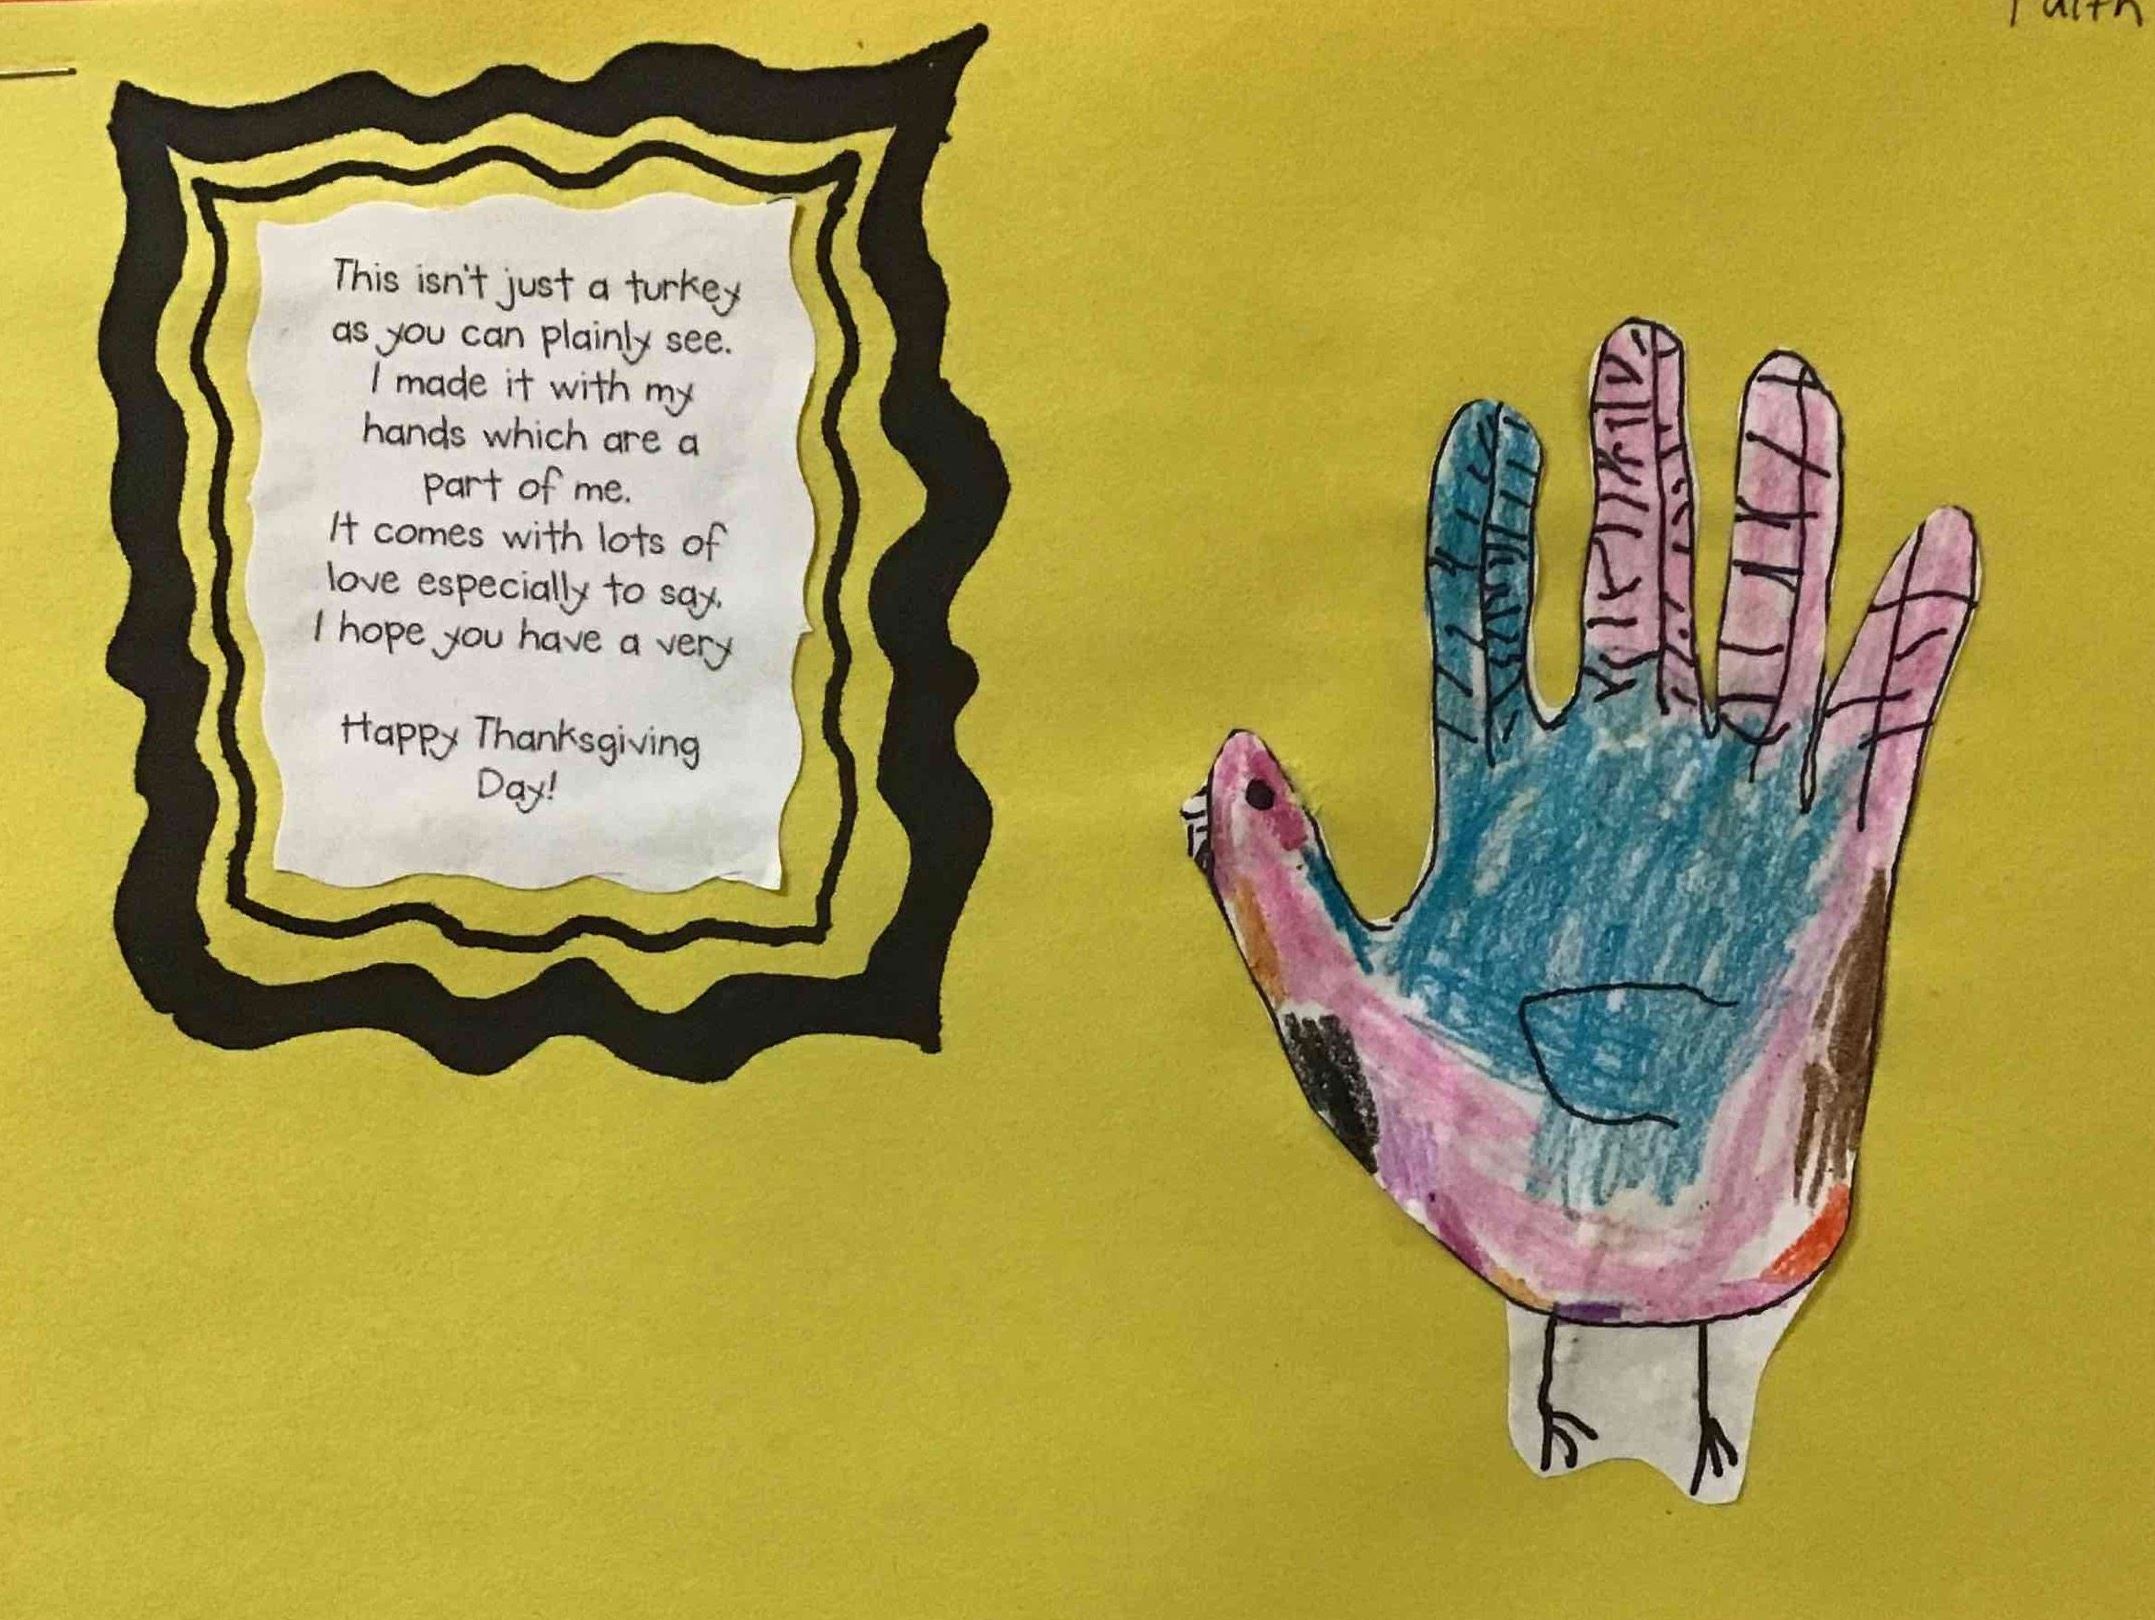 Faith
This isn't just a turkey
as you can plainly see.
I made it with my
hands which are a
part of me.
It comes with lots of
love especially to say,
I hope you have a very
Happy Thanksgiving
Day!